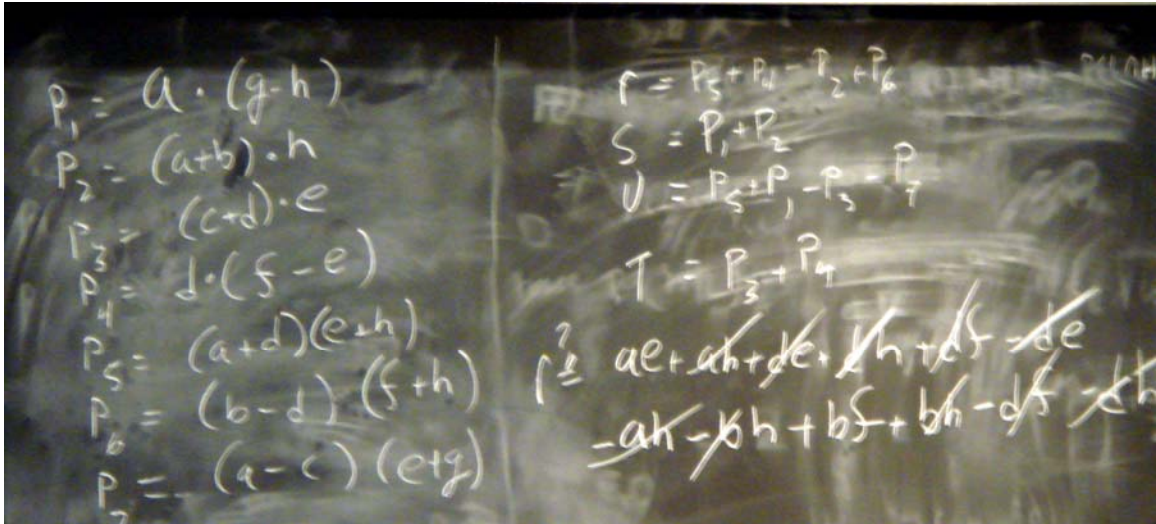 P₁ = a · (g-h)
P₂ = (a+b) · h
P₃ = (c+d) · e
P₄ = d · (f - e)
P₅ = (a+d)(e+h)
P₆ = (b-d) (f+h)
P₇ = (a-c) (e+g)
r = P₅ + P₄ - P₂ + P₆
S = P₁ + P₂
U = P₅ + P₁ - P₃ - P₇
T = P₃ + P₄
r ≟ ae + ah + de + dh + df - de
- ah - bh + bf + bh - df - dh